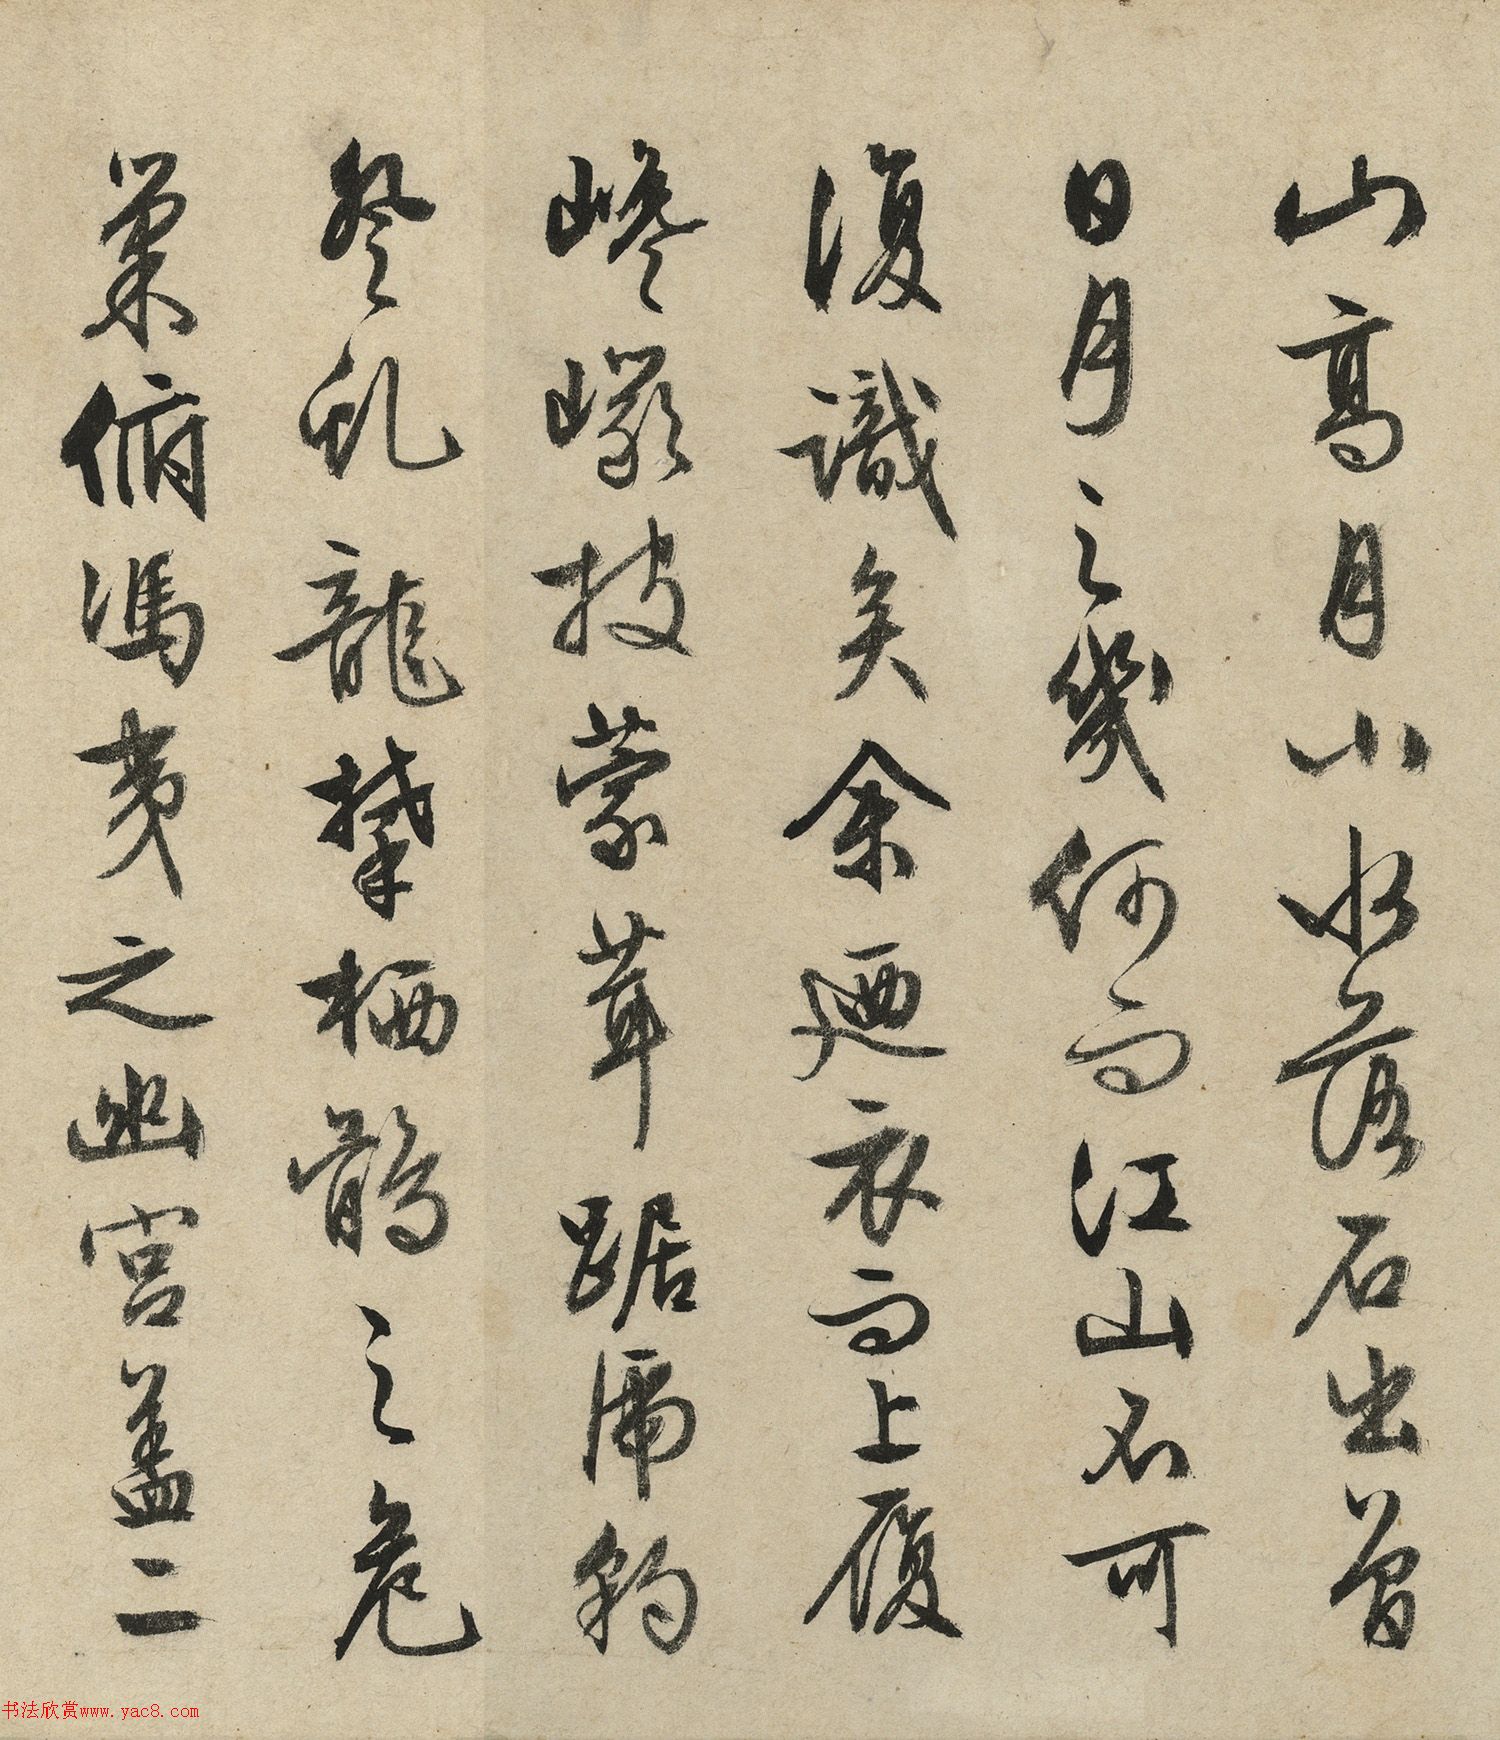 山高月小水落石出曾
日月之幾何而江山不可
復識矣余迺衣而上履
巉巗披蒙茸踞虎豹
登虬龍攀栖鶻之危
巢俯馮夷之幽宮盖二
书法欣赏www.yac8.com